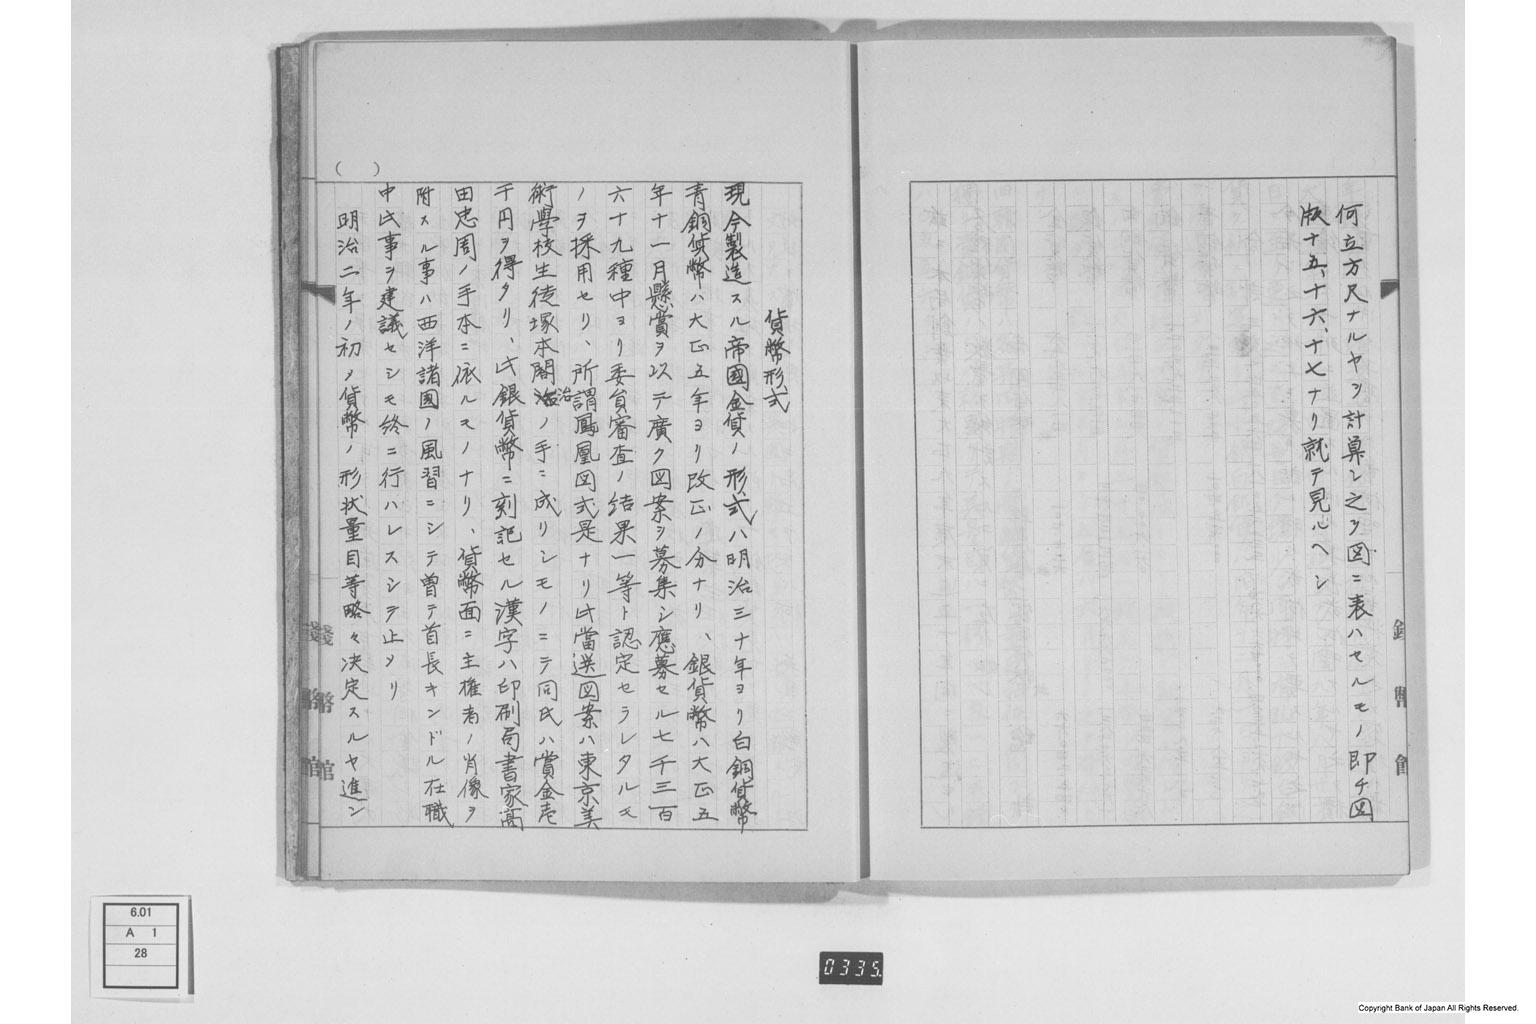 何立方尺ナルヤヲ計算シ之ヲ図ニ表ハセルモノ即チ図
版十五、十六、十七ナリ就テ見ルヘシ
銭幣館
貨幣形式
現今製造スル帝國金貨ノ形式ハ明治三十年ヨリ白銅貨幣
青銅貨幣ハ大正五年ヨリ改正ノ分ナリ、銀貨幣ハ大正五
年十一月懸賞ヲ以テ廣ク図案ヲ募集シ應募セル七千三百
六十九種中ヨリ委員審査ノ結果一等ト認定セラレタルモ
ノヲ採用セリ、所謂鳳凰図式是ナリ此當選図案ハ東京美
術學校生徒塚本閤治ノ手ニ成リシモノニテ同氏ハ賞金壱
千円ヲ得タリ、此銀貨幣ニ刻記セル漢字ハ印刷局書家高
田忠周ノ手本ニ依ルモノナリ、貨幣面ニ主権者ノ肖像ヲ
附スル事ハ西洋諸國ノ風習ニシテ曽テ首長キンドル在職
中此事ヲ建議セシモ終ニ行ハレスシテ止メリ
明治二年ノ初メ貨幣ノ形状量目等略々決定スルヤ進ン
( )
銭幣館
6.01
A 1
28
0335.
Copyright Bank of Japan All Rights Reserved.